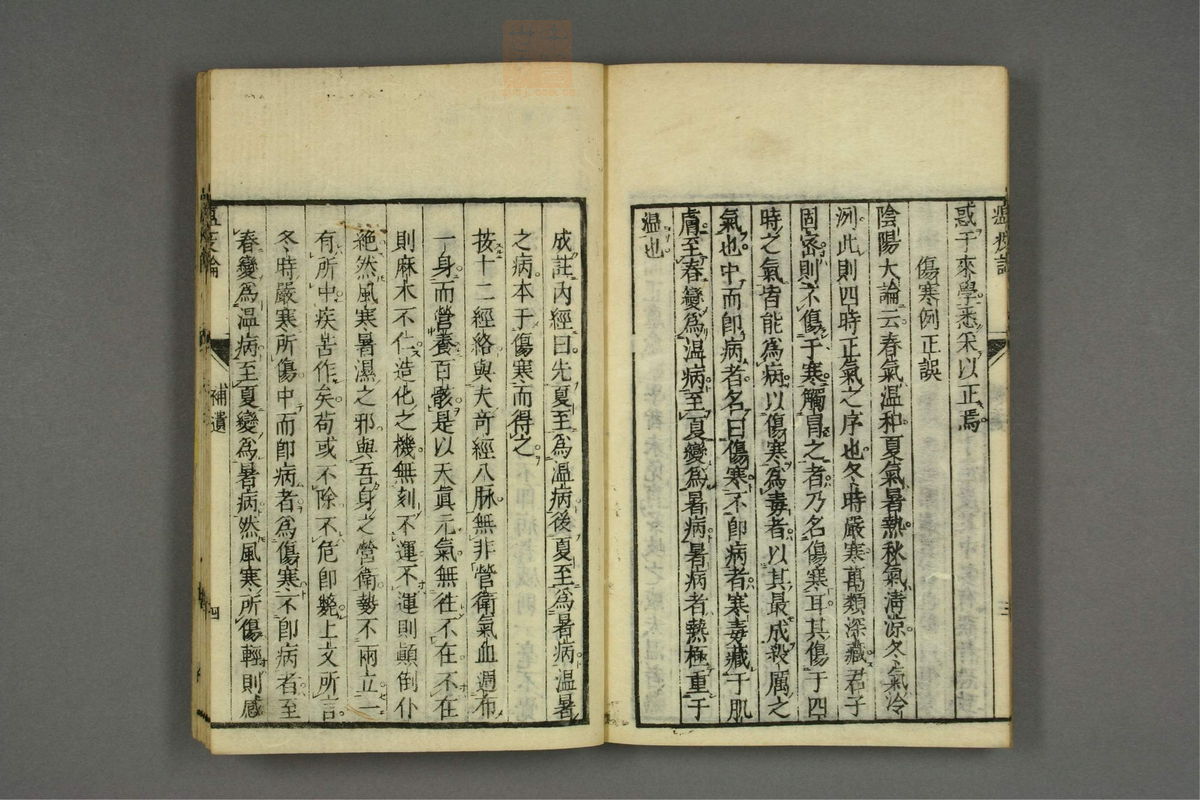 惑于來學悉采以正焉
傷寒例正誤
陰陽大論云春氣温和夏氣暑熱秋氣淸涼冬氣冷
冽此則四時正氣之序也冬時嚴寒萬類深藏君子
固密則不傷于寒觸冒之者乃名傷寒耳其傷于四
時之氣皆能為病以傷寒為毒者以其最成殺厲之
氣也中而卽病者名曰傷寒不卽病者寒毒藏于肌
膚至春變為温病至夏變為暑病暑病者熱極重于
温也
三
成註內經曰先夏至為温病後夏至為暑病温暑
之病本于傷寒而得之
按十二經絡與夫竒經八脉無非營衛氣血週布
一身而營養百骸是以天眞元氣無徃不在不在
則麻木不仁造化之機無刻不運不運則顚倒仆
絶然風寒暑濕之邪與吾身之營衛勢不兩立一
有所中疾苦作矣苟或不除不危卽斃上文所言
冬時嚴寒所傷中而卽病者為傷寒不卽病者至
春變為温病至夏變為暑病然風寒所傷輕則感
補遺
四